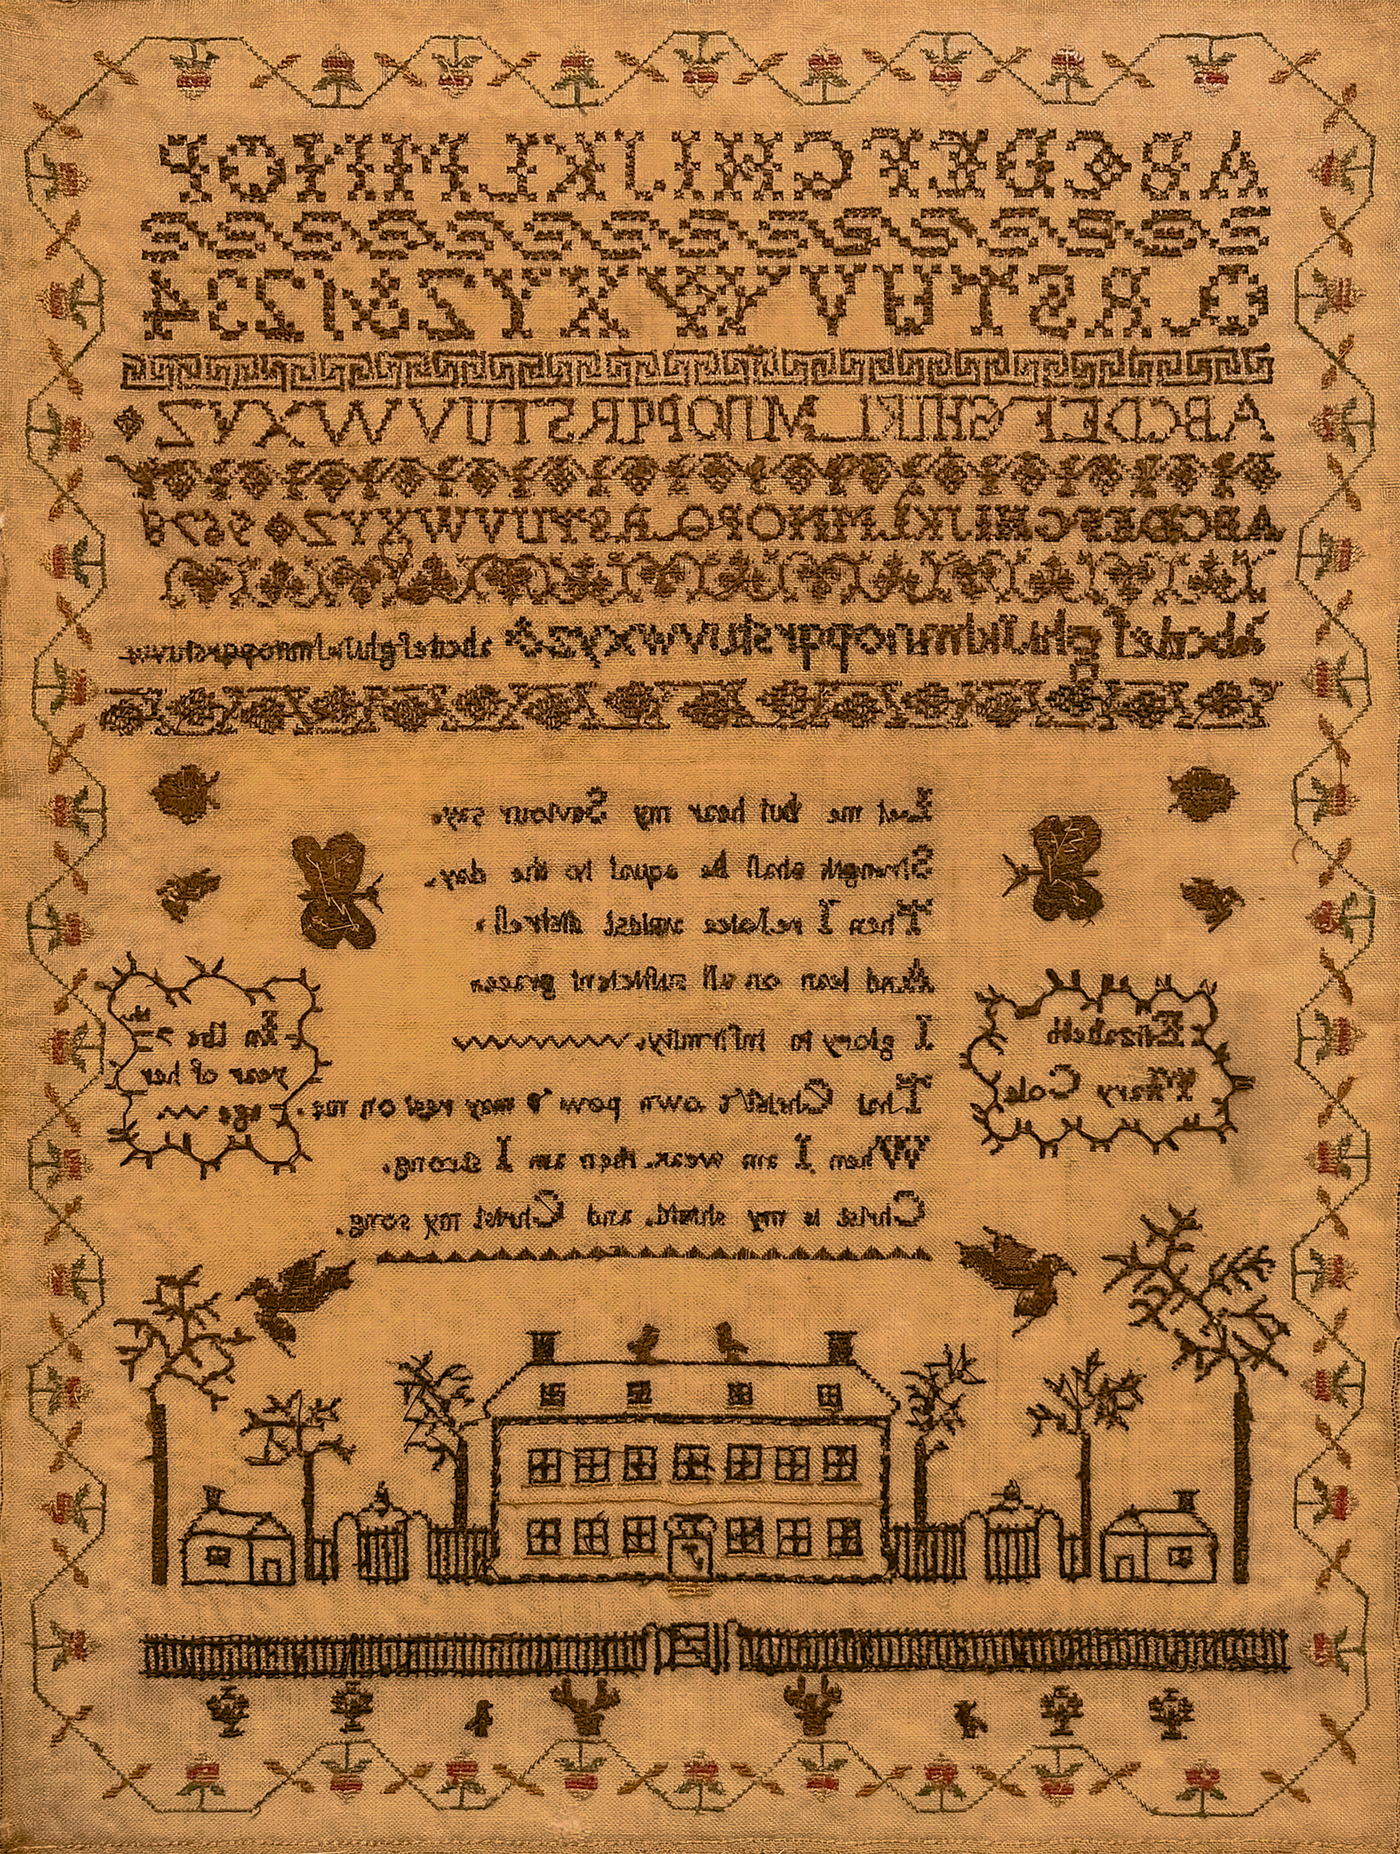 A B C D E F G H I J K L M N O P
Q R S T U V W X Y Z & 1 2 3 4
A B C D E F G H I K L M N O P Q R S T U V W X Y Z
A B C D E F G H I J K L M N O P Q R S T U V W X Y Z 5 6 7 8
a b c d e f g h i j k l m n o p q r s t u v w x y z & a b c d e f g h i j k l m n o p q r s t u v w
Let me but hear my Saviour say.
Strength shall be equal to the day.
Then I rejoice midst distreſs.
And lean on all sufficient grace
I glory in infirmity.
That Christ's own pow'r may rest on me.
When I am weak then am I strong.
Christ is my shield, and Christ my song.
Elizabeth
Mary Cole
In the 7th
year of her
age